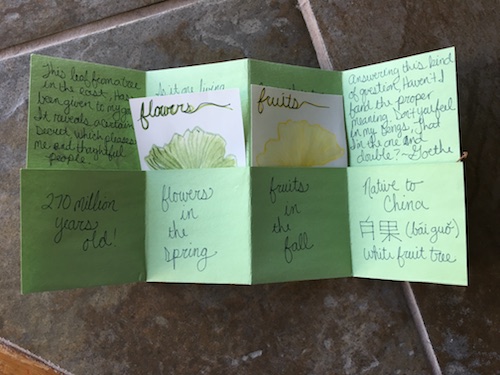 This leaf from a tree
in the east, Has
been given to my
It reveals a certain
secret which pleases
me and thoughtful
people.
Is it one living
flowers
fruits
Answering this kind
of question, Haven't I
found the proper
meaning. Don't you feel
in my songs, that
I'm the one and
double? ~Goethe
270 million
years
old.
flowers
in
the
spring
fruits
in
the
fall
Native to
China
自果 (bái guǒ)
white fruit tree